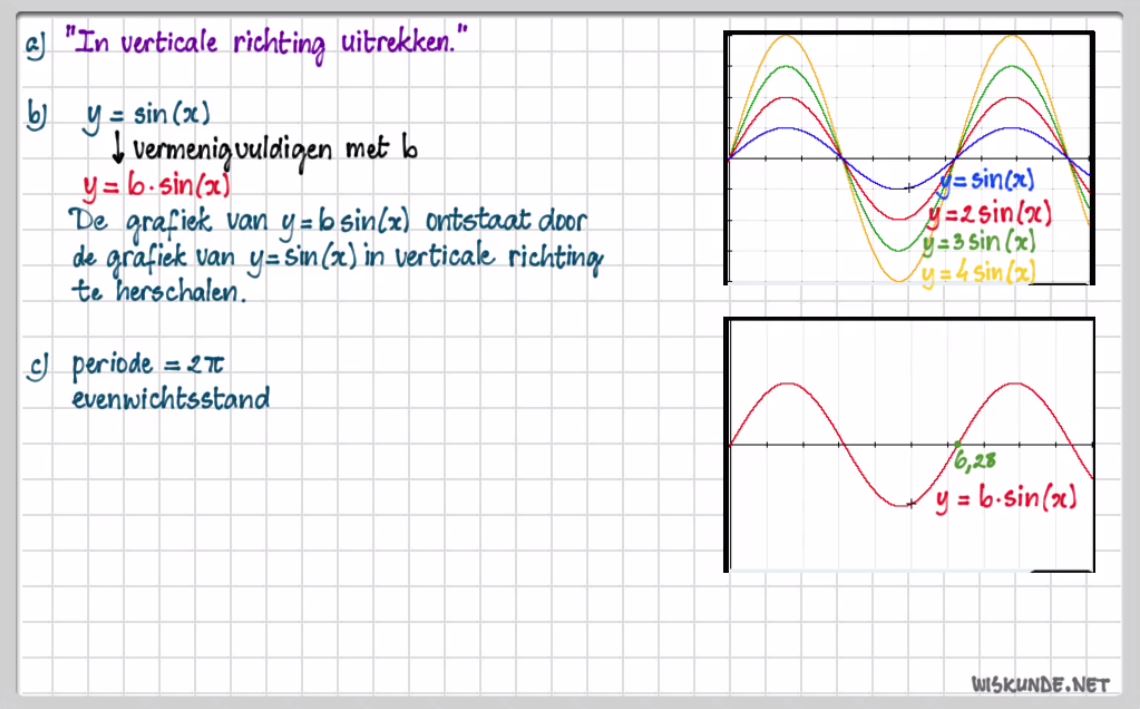 a) "In verticale richting uitrekken."
b) y = sin(x)
↓ vermenigvuldigen met b
y = b · sin(x)
De grafiek van y = b sin(x) ontstaat door
de grafiek van y = sin(x) in verticale richting
te herschalen.
c) periode = 2π
evenwichtsstand
y = sin(x)
y = 2 sin(x)
y = 3 sin(x)
y = 4 sin(x)
6,28
y = b · sin(x)
WISKUNDE.NET